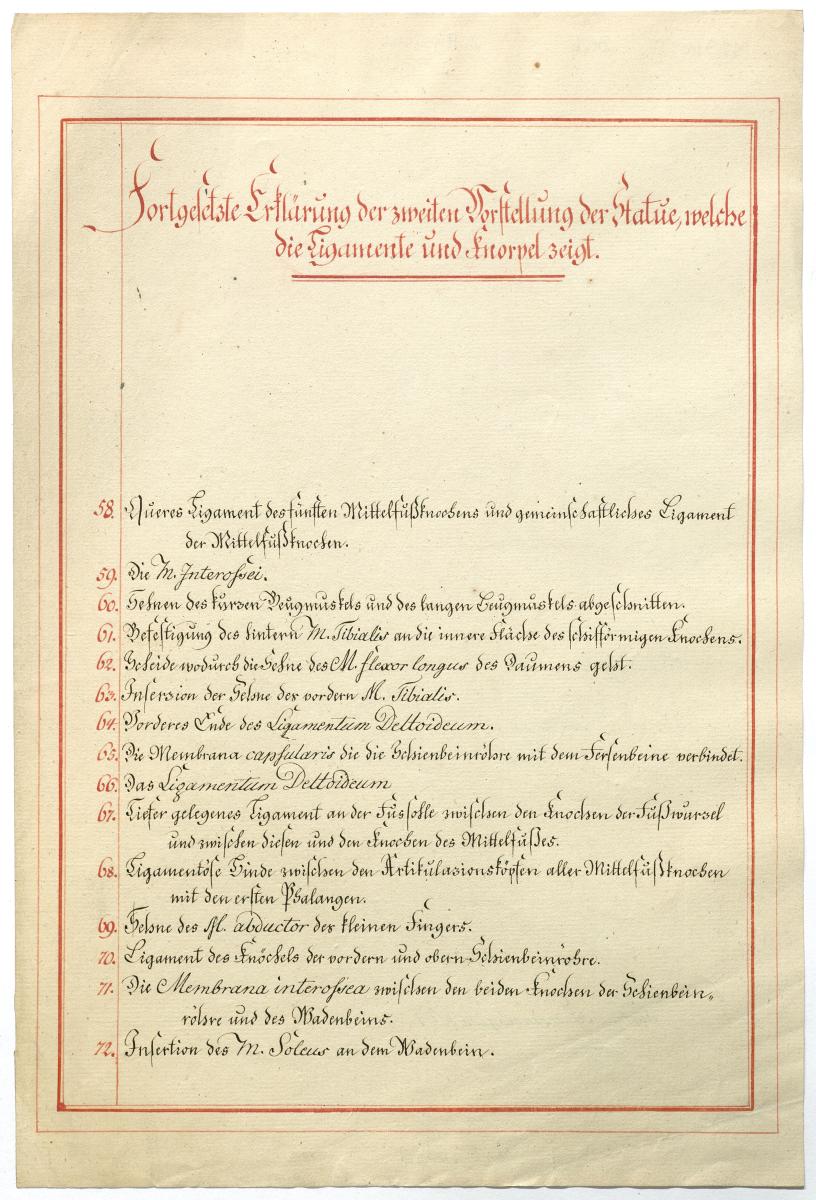 Fortgesetzte Erklärung der zweiten Vorstellung der Statue, welche
die Ligamente und Knorpel zeigt.
58. Queres Ligament des fünften Mittelfußknochens und gemeinschaftliches Ligament
der Mittelfußknochen.
59. Die M. Interossei.
60. Sehnen des kurzen Beugmuskels und des langen Beugmuskels abgeschnitten.
61. Befestigung des hintern M. Tibialis an die innere Fläche des schifförmigen Knochens.
62. Scheide wodurch die Sehne des M. flexor longus des Daumens geht.
63. Insersion der Sehne der vordern M. Tibialis.
64. Vorderes Ende des Ligamentum Deltoideum.
65. Die Membrana capsularis die die Schienbeinröhre mit dem Fersenbeine verbindet.
66. Das Ligamentum Deltoideum
67. Tiefer gelegenes Ligament an der Fussolle zwischen den Knochen der Fußwurzel
und zwischen diesen und den Knochen des Mittelfußes.
68. Ligamentöse Binde zwischen den Artikulasionsköpfen aller Mittelfußknochen
mit den ersten Phalangen.
69. Sehne des M. abductor des kleinen Fingers.
70. Ligament des Knöchels der vordern und obern Schienbeinröhre.
71. Die Membrana interossea zwischen den beiden Knochen der Schienbein„
röhre und des Wadenbeins.
72. Insertion des M. Soleus an dem Wadenbein.